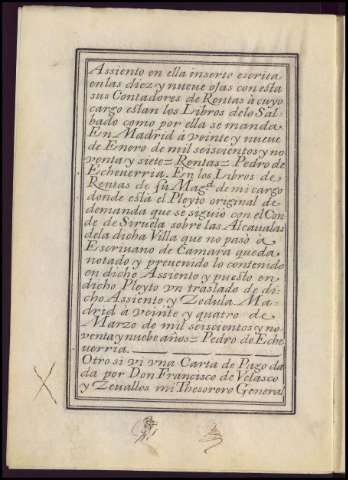 Assiento en ella inserto escrita
en las diez y nueue ojas con esta
sus Contadores de Rentas à cuyo
cargo estan los Libros de lo Sal-
bado como por ella se manda
En Madrid à veinte y nueue
de Enero de mil seiscientos y no
venta y siete = Rentas = Pedro de
Echeuerria. En los Libros de
Rentas de su Magd. de mi cargo
donde està el Pleyto original de
demanda que se siguio con el Con
de de Siruela sobre las Alcaualas
de la dicha Villa que no pasò à
Escriuano de Camara queda
notado y preuenido lo contenido
en dicho Assiento y puesto en
dicho Pleyto vn traslado de di
cho Assiento y Zedula. Ma-
drid à veinte y quatro de
Marzo de mil seiscientos y no
venta y nuebe años = Pedro de Eche
uerria.
Otro si vi vna Carta de Pago da
da por Don Francisco de Velasco
y Zeuallos mi Thesorero General